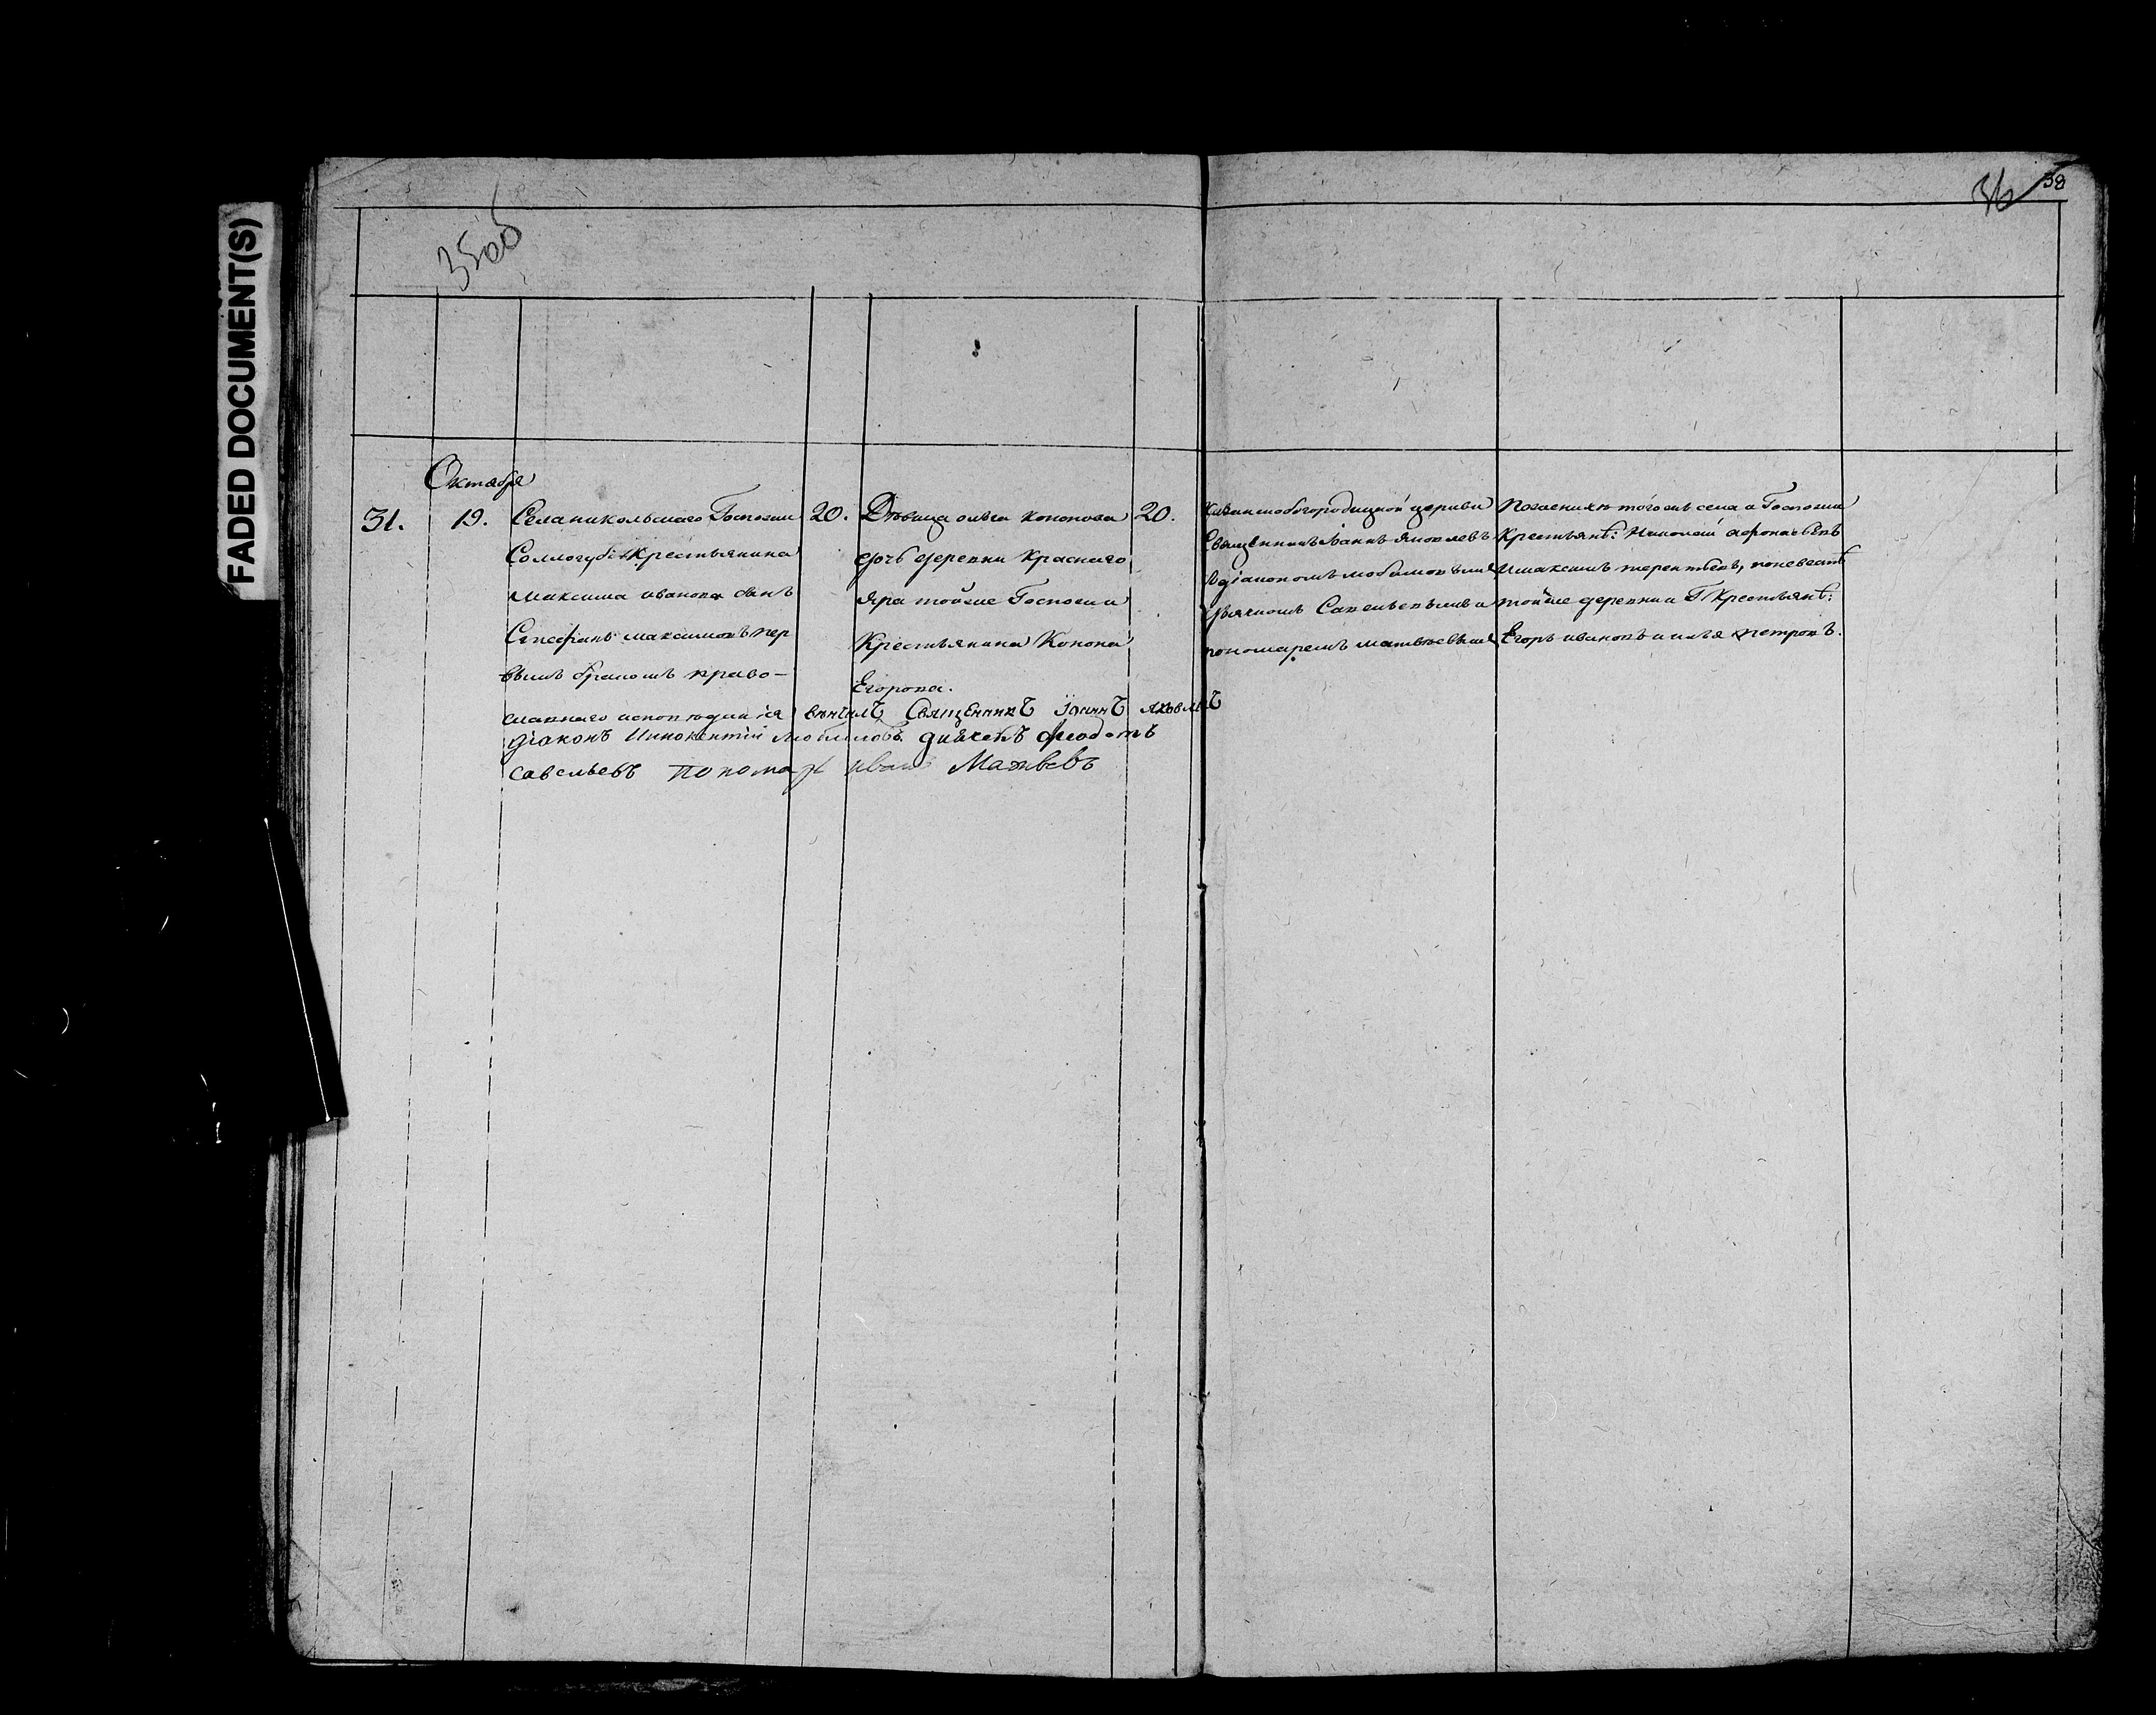 FADED DOCUMENT(S)
35об
36
38
Октября
31.
19.
Села никольскаго Госпожи
Соллогубъ Крестьянина
Максима иванова сынъ
Стефанъ максимовъ пер
вымъ бракомъ право-
славнаго исповѣданія
20.
Дѣвица ольга кононова
дочь деревни Краснаго
Яра тойже Госпожи
Крестьянина Конона
Егорова.
20.
Казанскобогородицкой церкви
Священникъ Іоаннъ Яковлевъ
с діакономъ любимовымъ
дьячкомъ Савельевымъ и
пономаремъ матвѣевымъ
По женихѣ тогожъ села и Госпожи
Крестьянѣ: Николай афонасьевъ
и максимъ терентьевъ, по невестѣ
тойже деревни и Г. Крестьянѣ:
Егоръ ивановъ и илья петровъ.
вѣнчалъ Священникъ Іоаннъ Яковлевъ
діаконъ Иннокентій Любимовъ. дьячекъ Феодотъ
савельевъ Пономарь иванъ Матвѣевъ